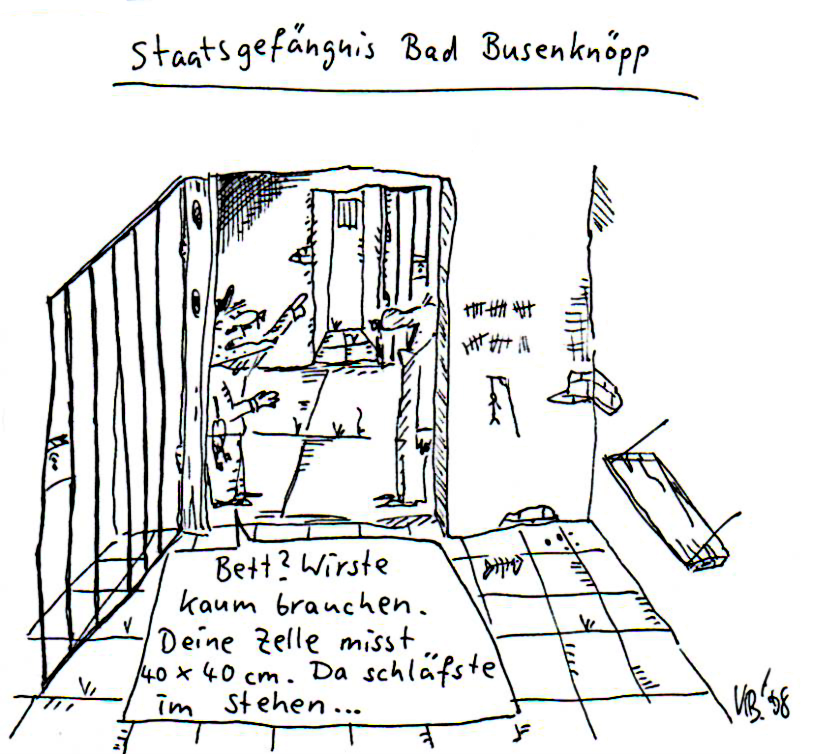 Staatsgefängnis Bad Busenknöpp
Bett? Wirste
kaum brauchen.
Deine Zelle misst
40 x 40 cm. Da schläfste
im Stehen...